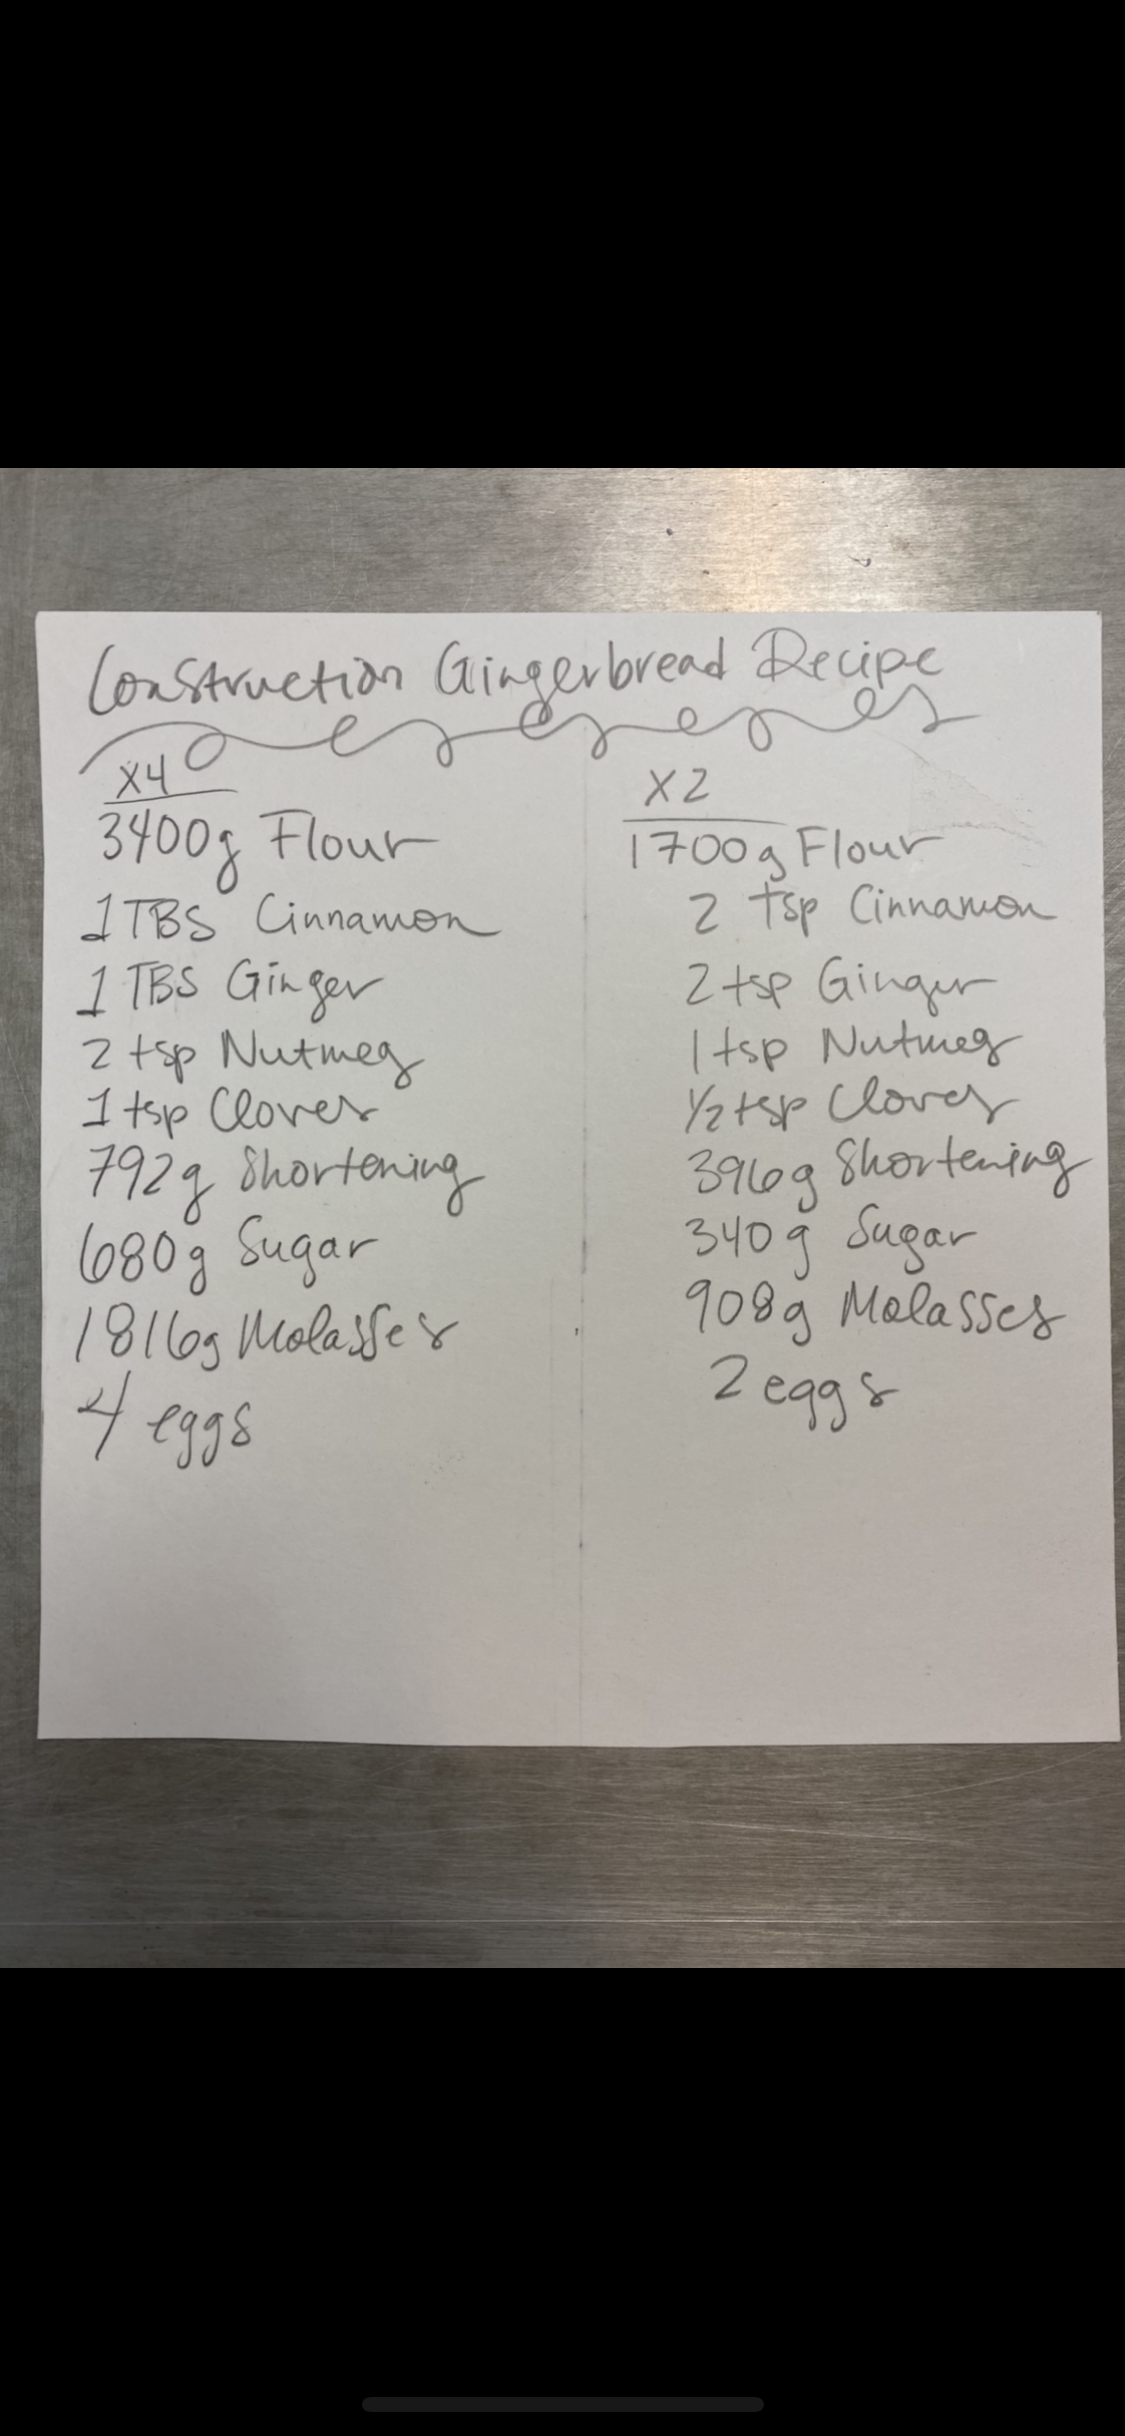 Construction Gingerbread Recipe
X4
3400g Flour
1 TBS Cinnamon
1 TBS Ginger
2 tsp Nutmeg
1 tsp Cloves
792g Shortening
680g Sugar
1816g Molasses
4 eggs
X2
1700g Flour
2 tsp Cinnamon
2 tsp Ginger
1 tsp Nutmeg
1/2 tsp Cloves
396g Shortening
340g Sugar
908g Molasses
2 eggs